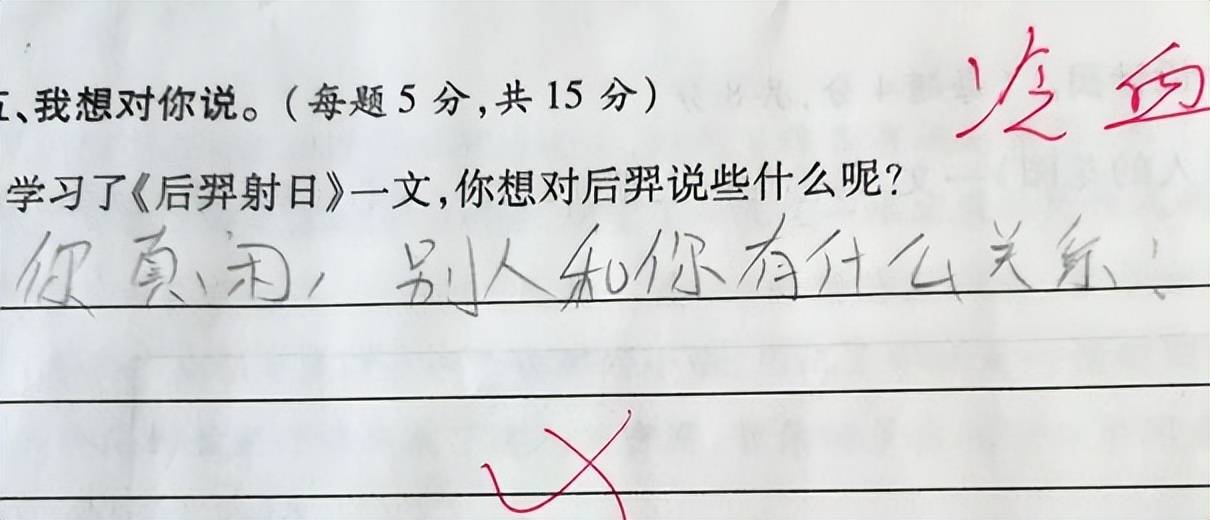 五、我想对你说。(每题5分,共15分)
冷血
学习了《后羿射日》一文,你想对后羿说些什么呢?
你真闲,别人和你有什么关系!